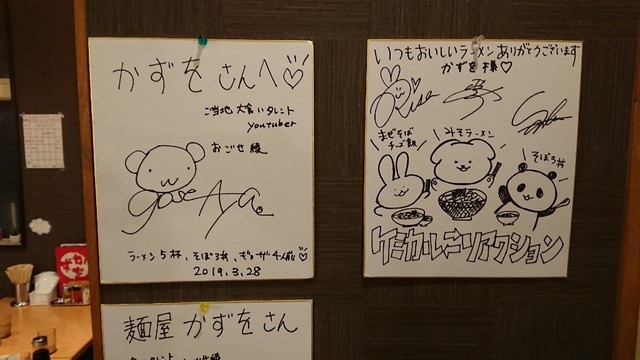 かずをさんへ♡
ご当地大食いタレント
youtuber
おごせ綾
gose Aya.
ラーメン5杯、そぼろ丼、ギョーザ4人前♡
2019.3.28
いつもおいしいラーメンありがとうございます
かずを様♡
まぜそば
チーズ飯
みそラーメン
そぼろ丼
ケミカル⇄リアクション
麺屋かずをさん